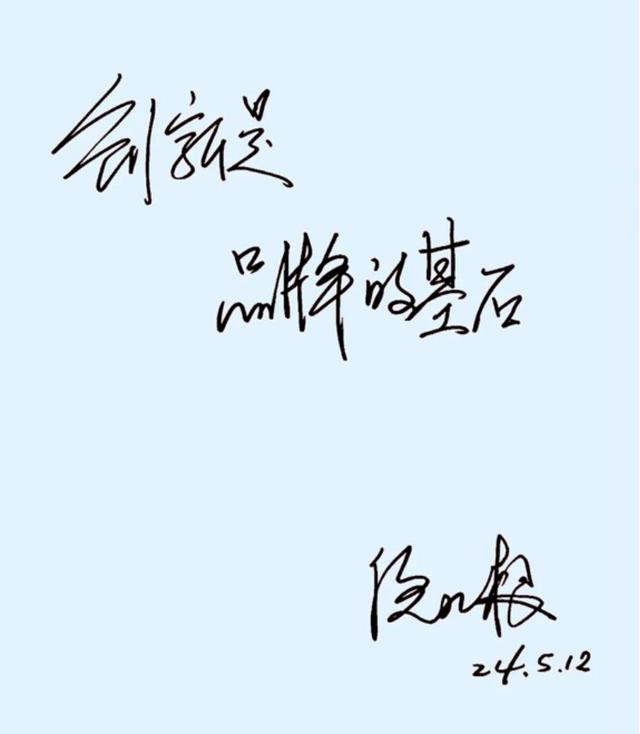 创新是
品牌的基石
24.5.12